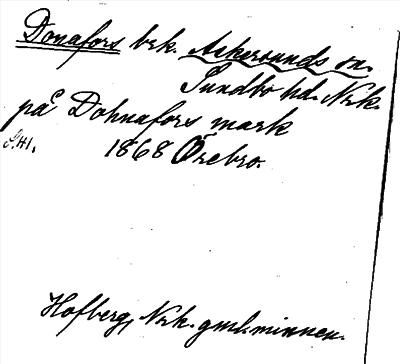 Donafors brk. Askersunds sn.
Sundbo hd. Nrk.
på Dohnafors mark
S. 41. 1868 Örebro.
Hofberg, Nrk. gml. minnen.